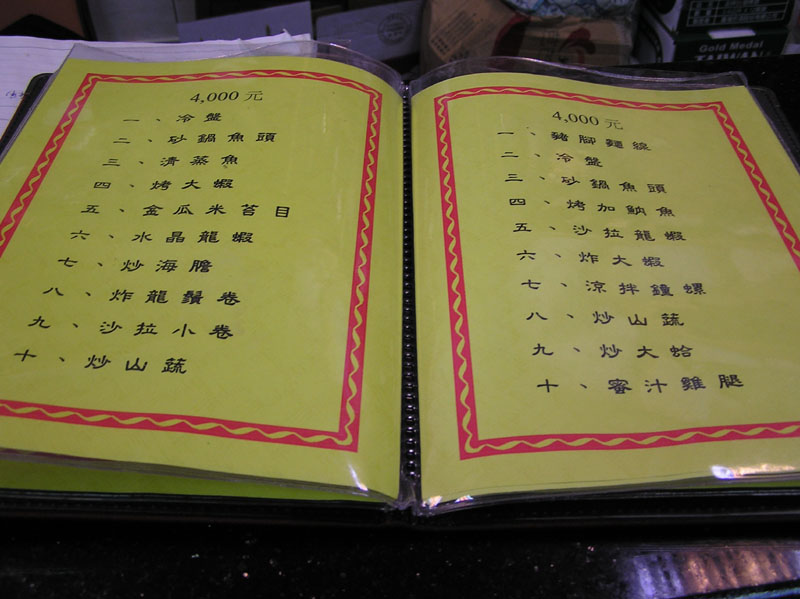 4,000 元
一、冷盤
二、砂鍋魚頭
三、清蒸魚
四、烤大蝦
五、金瓜米苔目
六、水晶龍蝦
七、炒海膽
八、炸龍鬚卷
九、沙拉小卷
十、炒山蔬
4,000 元
一、豬腳麵線
二、冷盤
三、砂鍋魚頭
四、烤加魶魚
五、沙拉龍蝦
六、炸大蝦
七、涼拌鐘螺
八、炒山蔬
九、炒大蛤
十、蜜汁雞腿
Gold Medal
TAIWAN